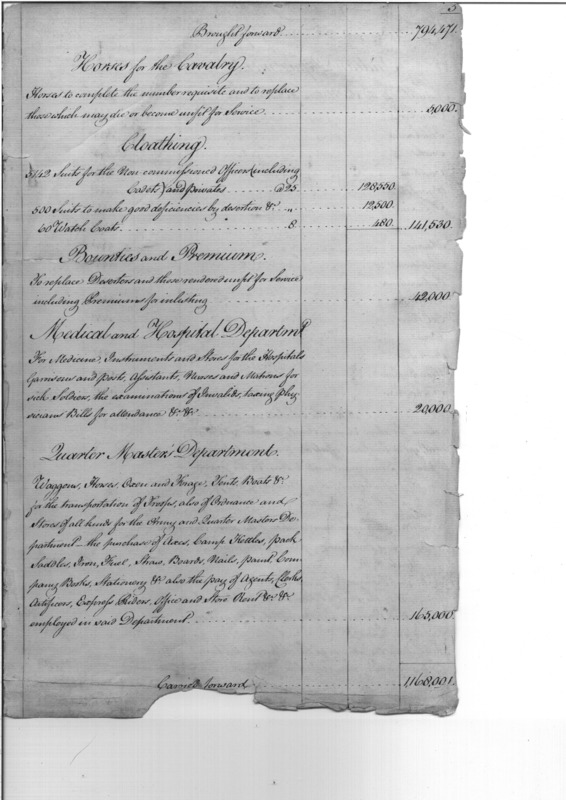 3
Brought forward 794,471.
Horses for the Cavalry.
Horses to complete the number requisite and to replace
those which may die or become unfit for Service 5,000.
Cloathing.
5142 Suits for the Non commissioned Officers (including
Cadets) and privates @ 25 128,550.
500 Suits to make good deficiencies by desertion &c. " 12,500.
60 Watch Coats 8 480. 141,530.
Bounties and Premium.
To replace Deserters and those rendered unfit for Service
including Premiums for inlisting 42,000.
Medical and Hospital Departmt
For Medicine, Instruments and Stores for the Hospitals
Garrisons and posts, Assistants, Nurses and Matrons for
sick Soldiers, the examinations of Invalids, taxing Phy-
sicians Bills for attendance &c &c 20,000.
Quarter Master's Department.
Waggons, Horses, Oxen and Forage, Tents Boats &c
for the transportation of Troops, also of Ordnance and
Stores of all kinds for the Army and Quarter Masters De-
partment - the purchase of Axes, Camp Kettles, pack
Saddles, Iron, Fuel, Straw, Boards, Nails, paint Com-
pany Books, Stationery &c also the pay of Agents, Clerks,
Artificers, Express Riders, Office and Store Rent &c &c
employed in said Department 165,000.
Carried forward 1,168,001.